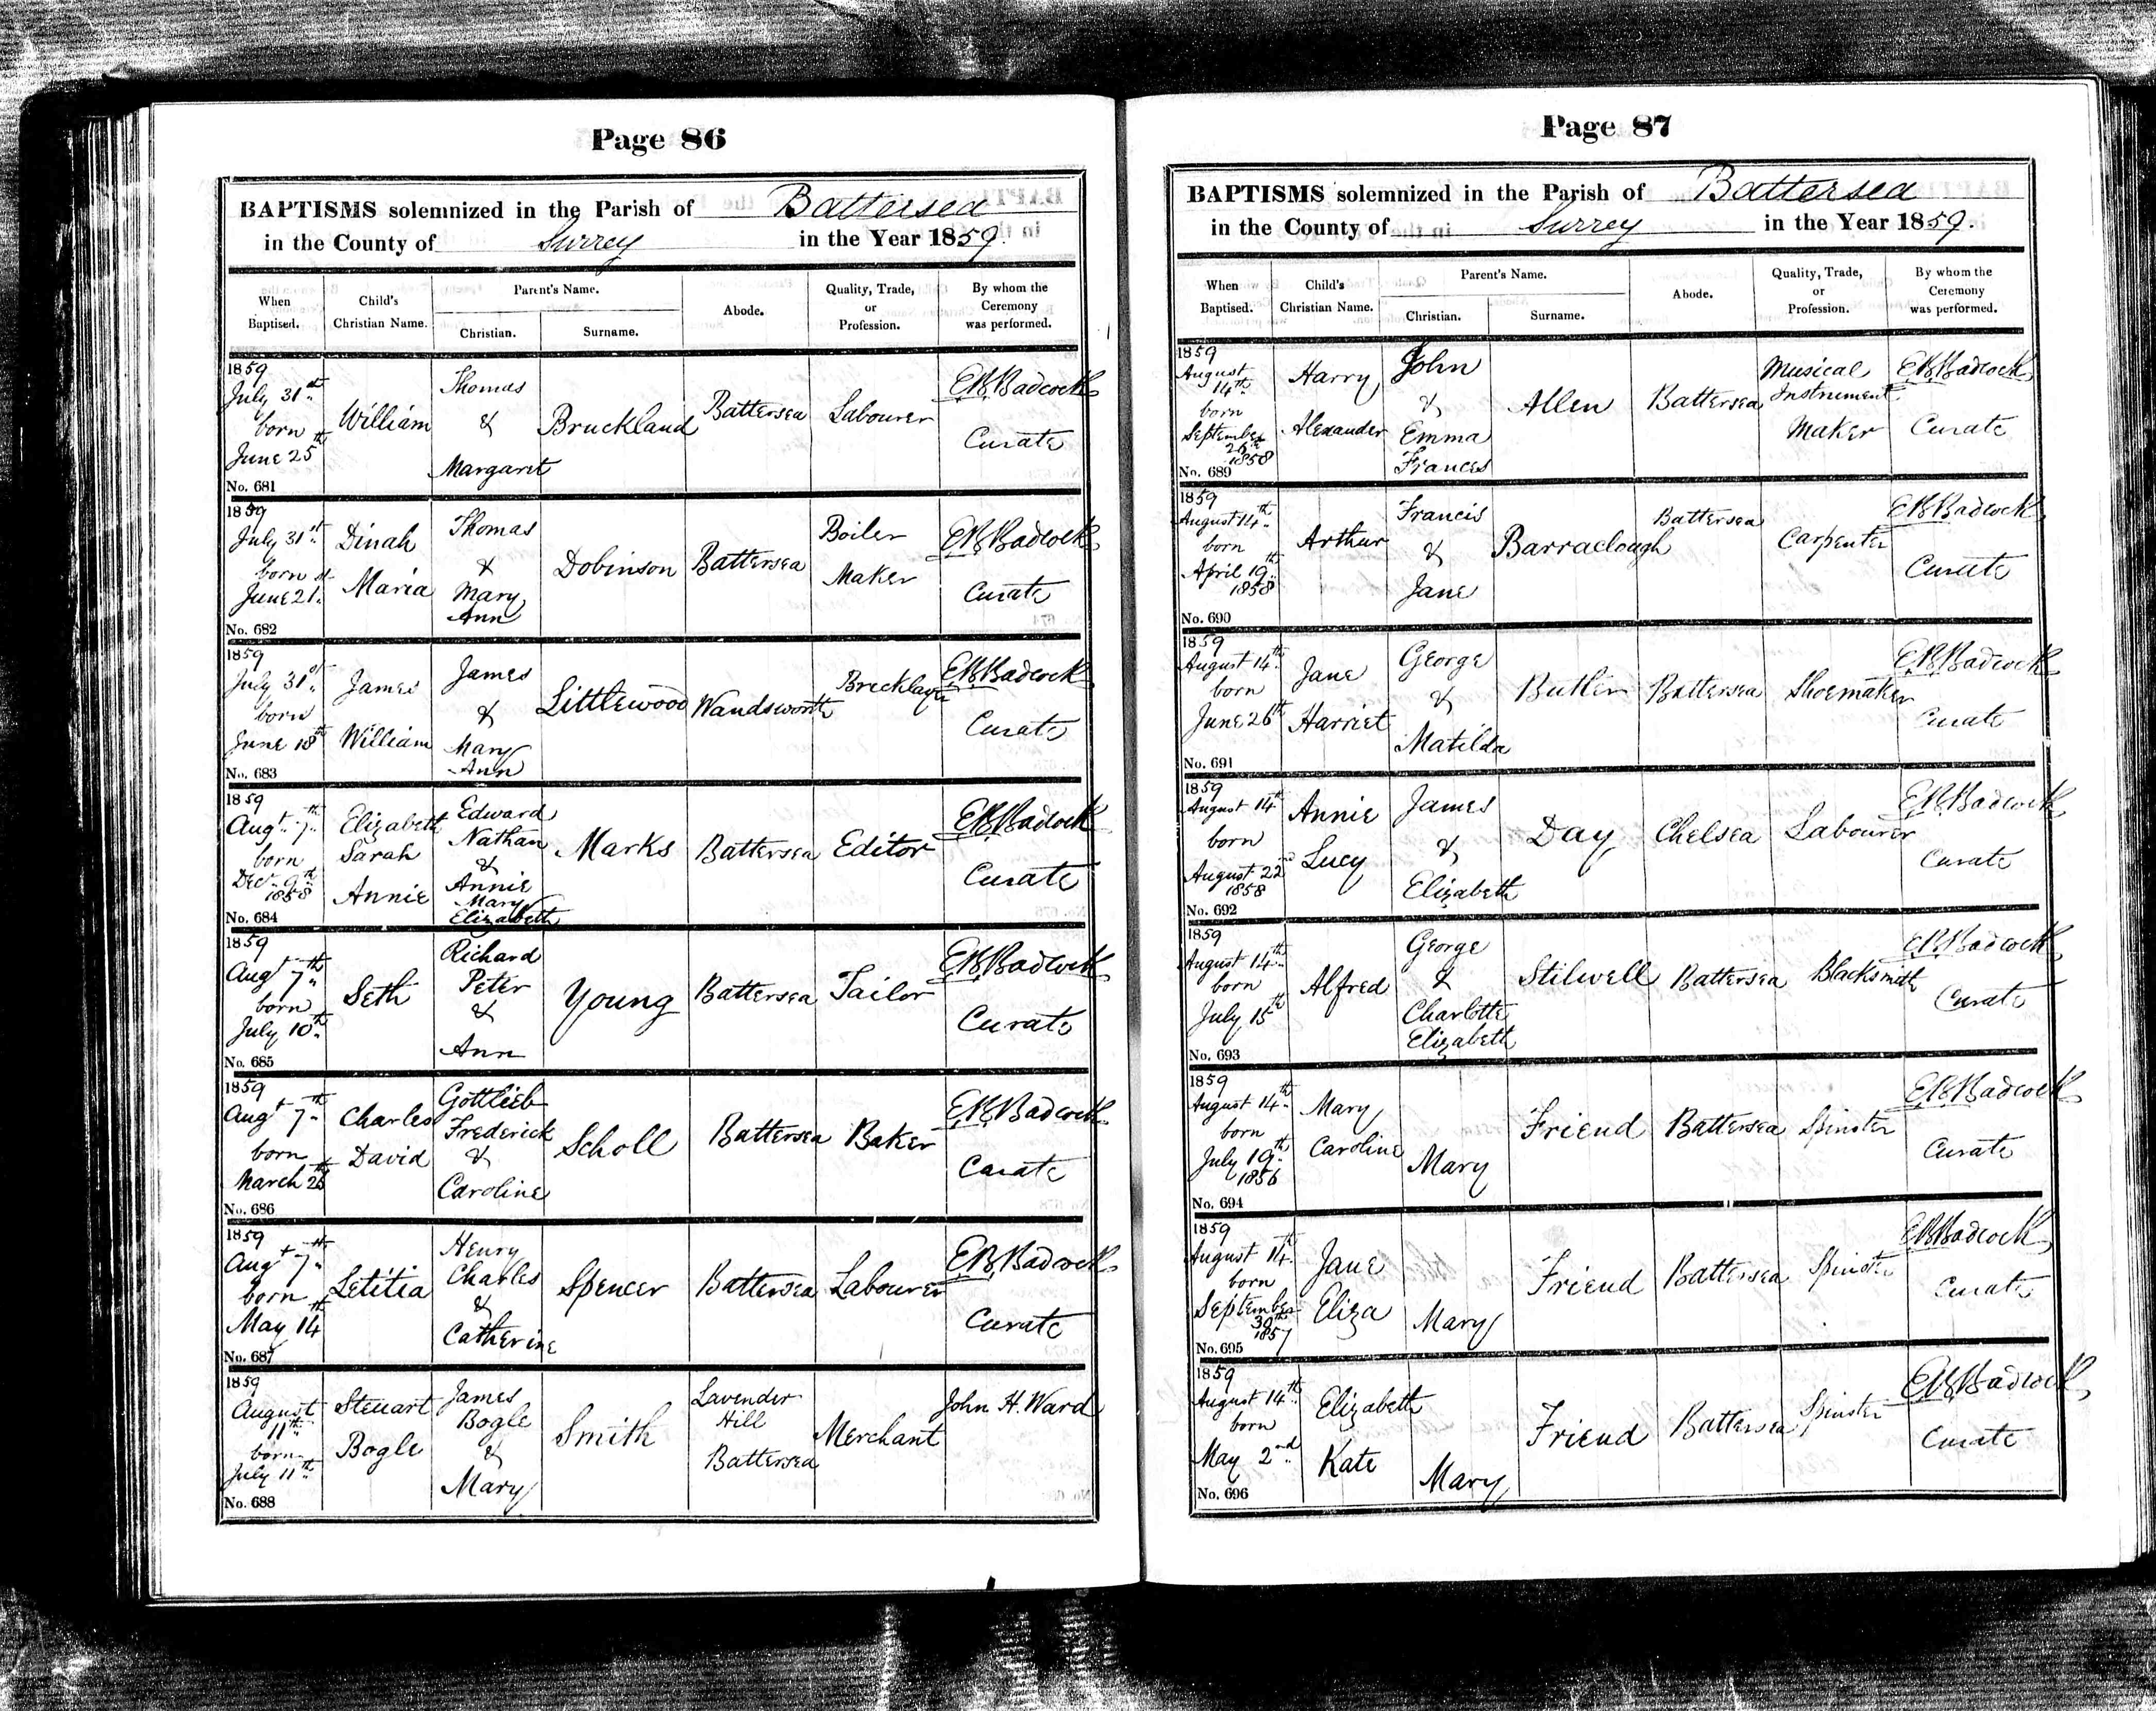 Page 86
BAPTISMS solemnized in the Parish of Battersea
in the County of Surrey in the Year 1859.
When Baptised. Child's Christian Name. Parent's Name. Christian. Surname. Abode. Quality, Trade, or Profession. By whom the Ceremony was performed.
1859
July 31st born June 25th
William
Thomas & Margaret
Bruckland
Battersea
Labourer
E B Badcock Curate
No. 681
1859
July 31st born June 21st
Dinah Maria
Thomas & Mary Ann
Dobinson
Battersea
Boiler Maker
E B Badcock Curate
No. 682
1859
July 31st born June 18th
James William
James & Mary Ann
Littlewood
Wandsworth
Brecklayer
E B Badcock Curate
No. 683
1859
Augt 7th born Decr 9th 1858
Elizabeth Sarah Annie
Edward Nathan & Annie Mary Elizabeth
Marks
Battersea
Editor
E B Badcock Curate
No. 684
1859
Augt 7th born July 10th
Seth
Richard Peter & Ann
Young
Battersea
Tailor
E B Badcock Curate
No. 685
1859
Augt 7th born March
Charles David
Gottlieb Frederick & Caroline
Scholl
Battersea
Baker
E B Badcock Curate
No. 686
1859
Augt 7th born May 14th
Letitia
Henry Charles & Catherine
Spencer
Battersea
Labourer
E B Badcock Curate
No. 687
1859
August 11th born July 11th
Steuart Bogle
James Bogle & Mary
Smith
Lavender Hill Battersea
Merchant
John H. Ward
No. 688
Page 87
BAPTISMS solemnized in the Parish of Battersea
in the County of Surrey in the Year 1859.
When Baptised. Child's Christian Name. Parent's Name. Christian. Surname. Abode. Quality, Trade, or Profession. By whom the Ceremony was performed.
1859
August 14th born September 26th 1858
Harry Alexander
John & Emma Frances
Allen
Battersea
Musical Instrument Maker
E B Badcock Curate
No. 689
1859
August 14th born April 19th 1858
Arthur
Francis & Jane
Barraclough
Battersea
Carpenter
E B Badcock Curate
No. 690
1859
August 14th born June 26th
Jane Harriet
George & Matilda
Butler
Battersea
Shoemaker
E B Badcock Curate
No. 691
1859
August 14th born August 22nd 1858
Annie Lucy
James & Elizabeth
Day
Chelsea
Labourer
E B Badcock Curate
No. 692
1859
August 14th born July 15th
Alfred
George & Charlotte Elizabeth
Stilwell
Battersea
Blacksmith
E B Badcock Curate
No. 693
1859
August 14th born July 19th 1856
Mary Caroline
Mary
Friend
Battersea
Spinster
E B Badcock Curate
No. 694
1859
August 14th born September 30th 1857
Jane Eliza
Mary
Friend
Battersea
Spinster
E B Badcock Curate
No. 695
1859
August 14th born May 2nd
Elizabeth Kate
Mary
Friend
Battersea
Spinster
E B Badcock Curate
No. 696